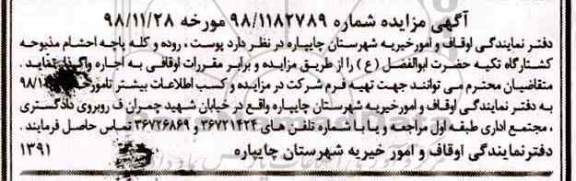 آگهی مزایده شماره ۹۸/۱۱۸۲۷۸۹ مورخه ۹۸/۱۱/۲۸
دفتر نمایندگی اوقاف و امور خیریه شهرستان چایپاره در نظر دارد پوست ، روده و کله پاچه احشام مذبوحه
کشتارگاه تکیه حضرت ابوالفضل (ع) را از طریق مزایده و برابر مقررات اوقافی به اجاره واگذار نماید .
متقاضیان محترم می توانند جهت تهیه فرم شرکت در مزایده و کسب اطلاعات بیشتر تا مورخ
به دفتر نمایندگی اوقاف و امور خیریه شهرستان چایپاره واقع در خیابان شهید چمران ف روبروی دادگستری
، مجتمع اداری طبقه اول مراجعه و یا با شماره تلفن های ۳۶۷۲۱۴۲۴ و ۳۶۷۲۶۸۶۹ تماس حاصل فرمایند .
دفتر نمایندگی اوقاف و امور خیریه شهرستان چایپاره ۱۳۹۱